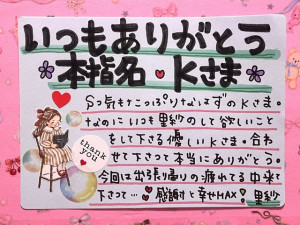 いつもありがとう
本指名 Kさま
Sっ気もたっぷりなはずのKさま。
なのにいつも里紗のして欲しいこと
をして下さる優しいKさま。合わ
せて下さって本当にありがとう。
thank you
今回は出張帰りの疲れてる中来て
下さって… 感謝と幸せMAX! 里紗